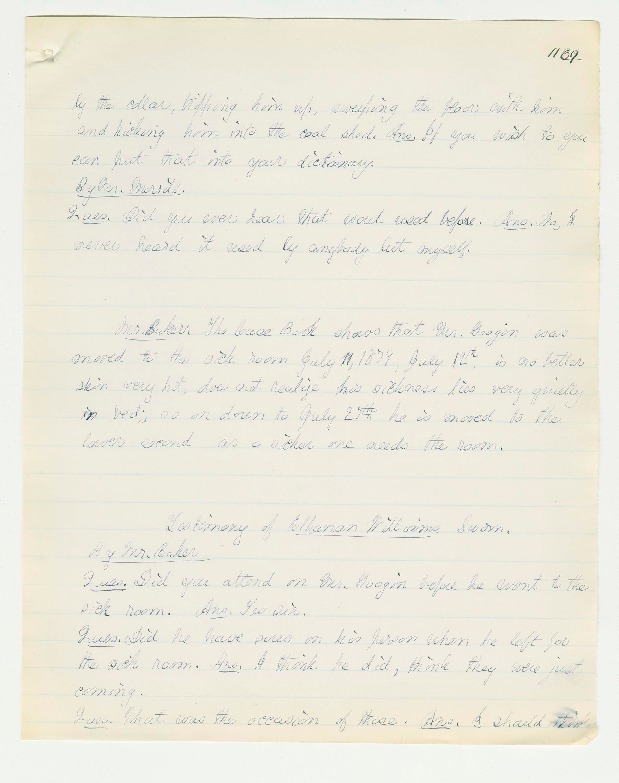 1169.
by the collar, tipping him up, sweeping the floor with him
and kicking him into the coal shed. Ans. If you wish to you
can put that into your dictionary.
By Mr. Merrill.
Ques. Did you ever hear that word used before. Ans. No, I
never heard it used by anybody but myself.
Mr. Baker. The Case Book shows that Mr. Goggin was
moved to the sick room July 11, 1874, July 12th, is no better
skin very hot, does not realize his sickness lies very quietly
in bed; so on down to July 27th he is moved to the
lower second as a sicker one needs the room.
Testimony of Williams Sworn.
By Mr. Baker.
Ques. Did you attend on Mr. Goggin before he went to the
sick room. Ans. Yes sir.
Ques. Did he have sores on his person when he left for
the sick room. Ans. I think he did, think they were just
coming.
Ques. What was the occasion of those. Ans. I should think